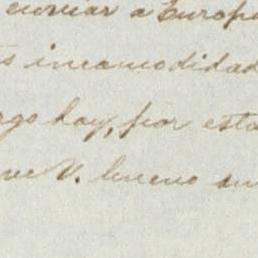 enviar a Europa
s incomodidad
go hoy, por esta
ve V. bueno su